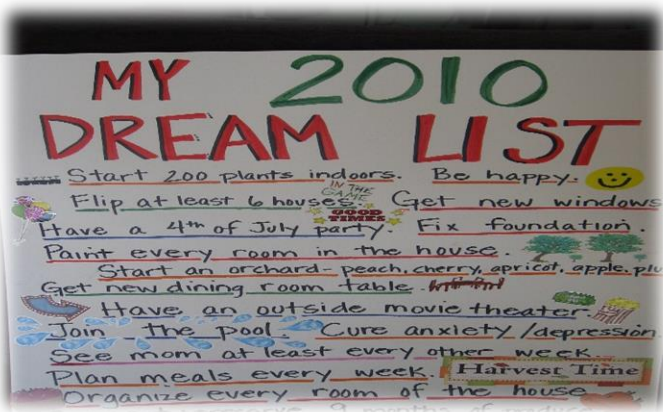 MY 2010
DREAM LIST
Start 200 plants indoors. Be happy.
IN THE
GAME
Flip at least 6 houses. Get new windows
GOOD
TIMES
Have a 4th of July party. Fix foundation.
Paint every room in the house.
Start an orchard - peach, cherry, apricot, apple, plu
Get new dining room table.
Have an outside movie theater.
Join the pool. Cure anxiety/depression
See mom at least every other week.
Plan meals every week. Harvest Time
Organize every room of the house
9 months of